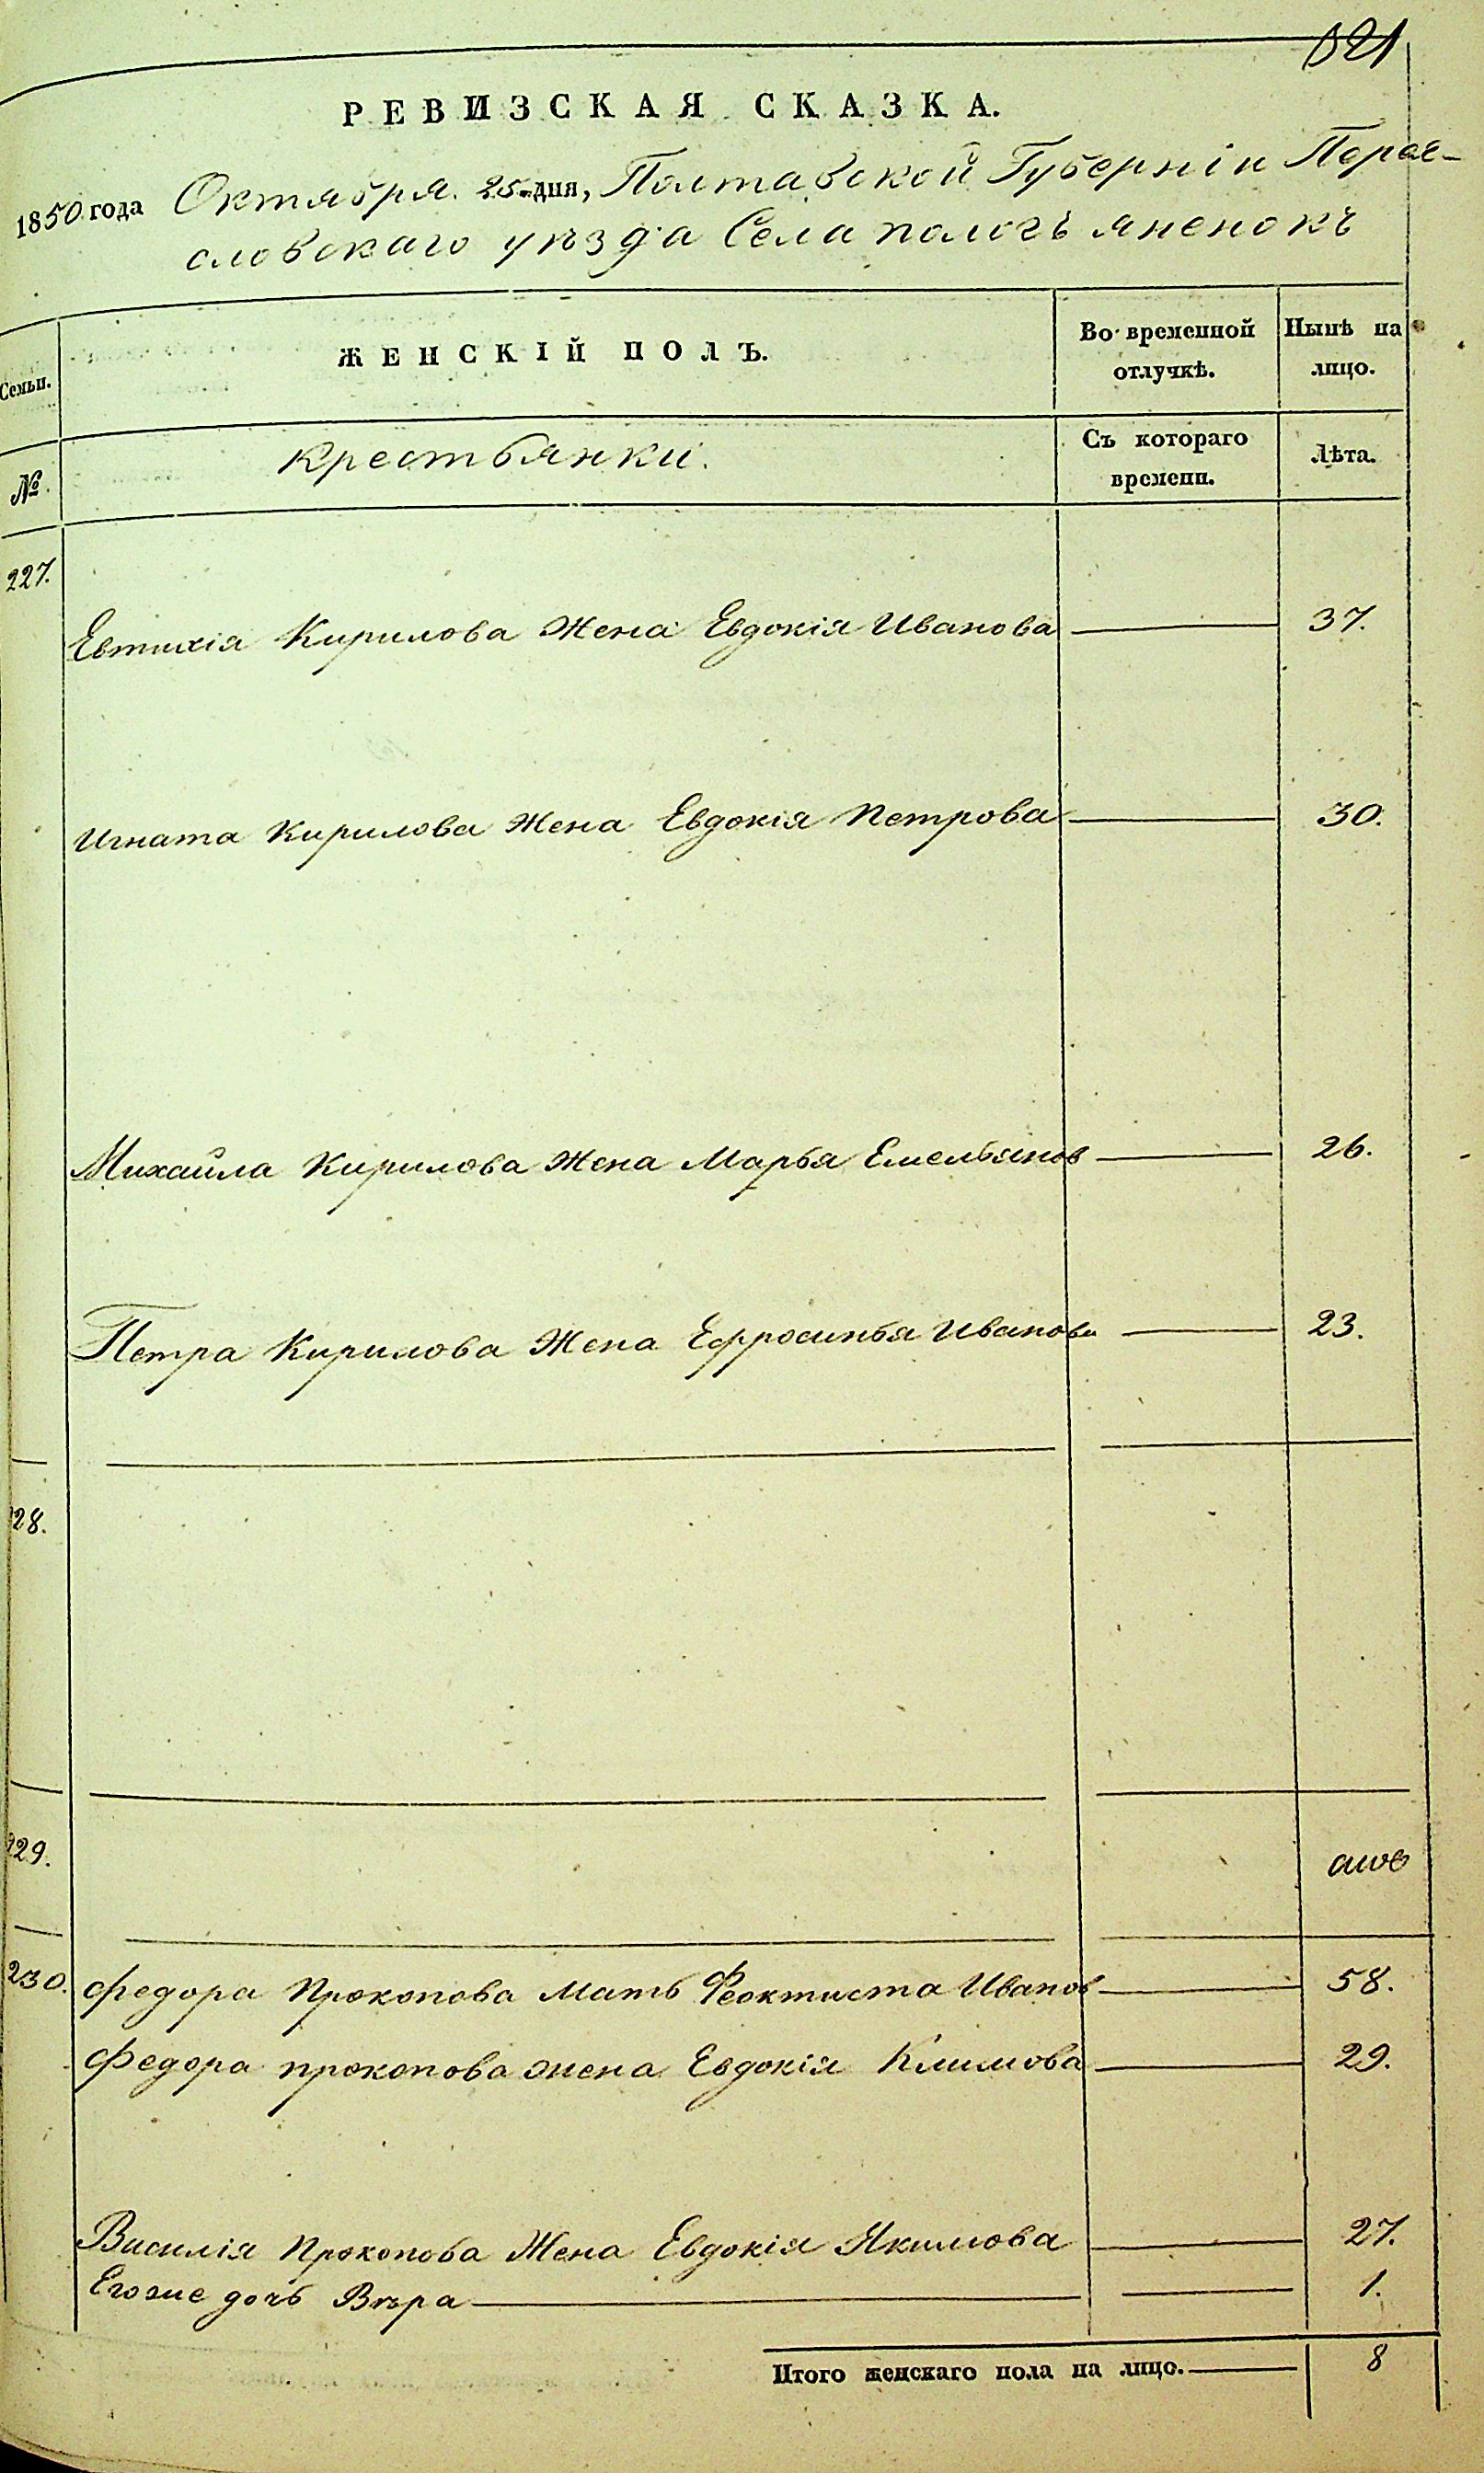 621
РЕВИЗСКАЯ СКАЗКА.
1850 года Октября 25 дня, Полтавской Губерніи Перея-
словскаго уѣзда Села
Семьи.
ЖЕНСКІЙ ПОЛЪ.
Во временной отлучкѣ.
Нынѣ на лицо.
№
Крестьянки.
Съ котораго времени.
Лѣта.
227.
Евтихія Кирилова Жена Евдокія Иванова 37.
Игната Кирилова Жена Евдокія Петрова 30.
Михайла Кирилова Жена Марья Емельянов 26.
Петра Кирилова Жена Ефросинья Иванова 23.
228.
229.
230. Федора Прокопова Мать Феоктиста Иванов 58.
Федора прокопова жена Евдокія Климова 29.
Василія Прокопова Жена Евдокія Якимова 27.
Егоже дочь Вѣра 1.
Итого женскаго пола на лицо. 8